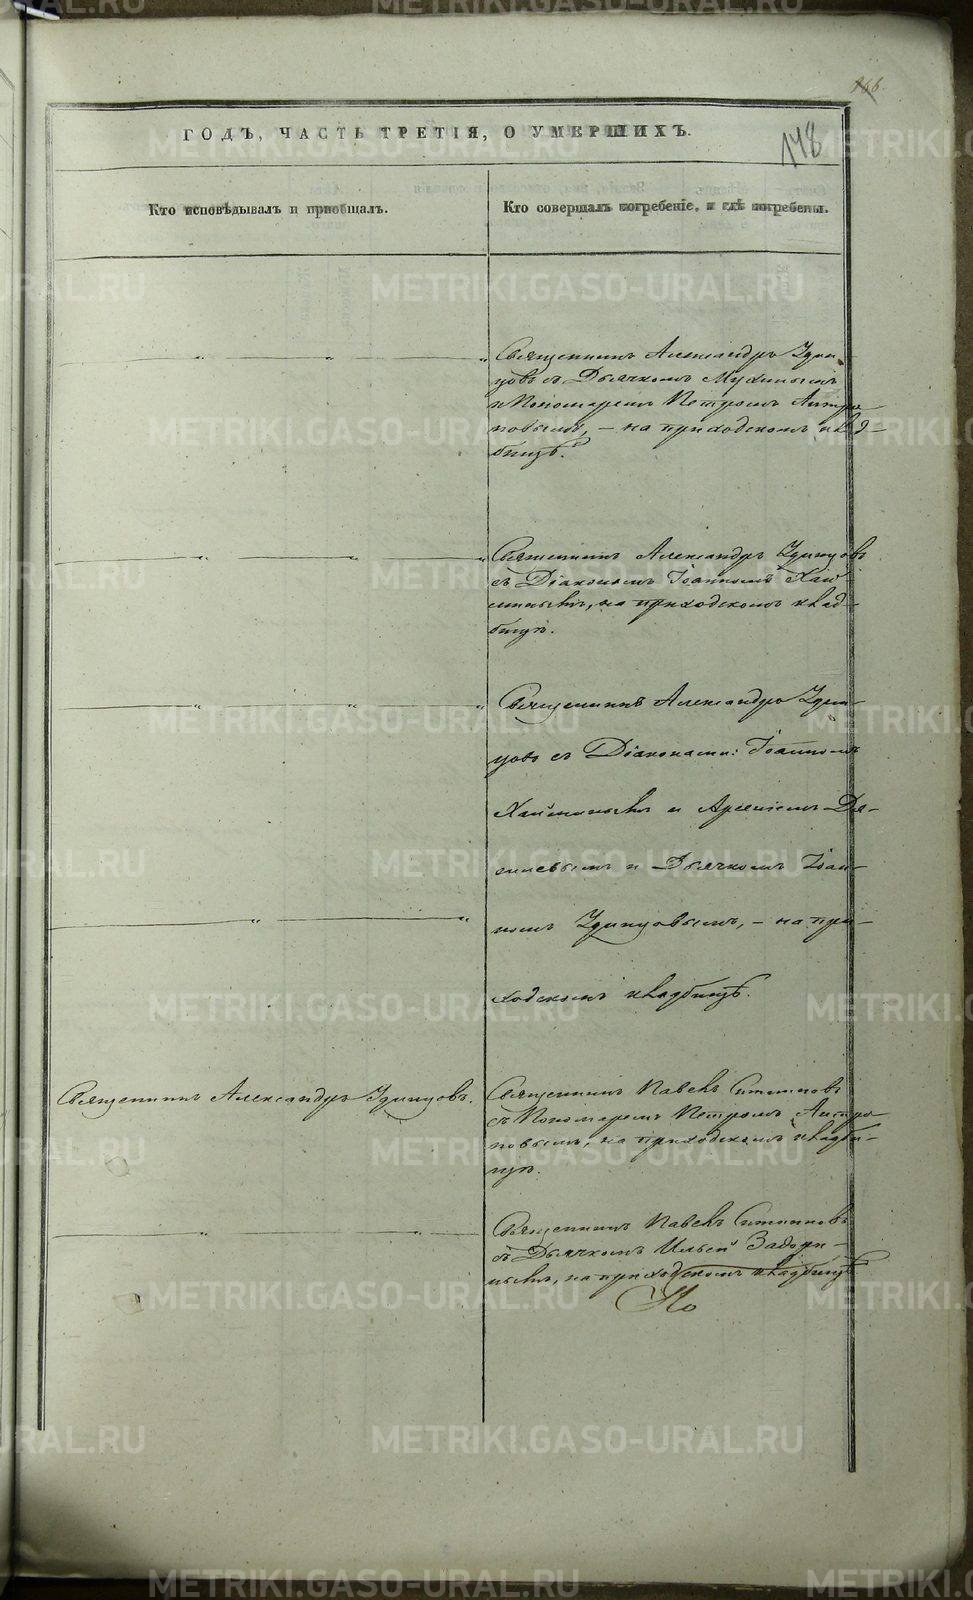 166.
ГОДЪ, ЧАСТЬ ТРЕТІЯ, О УМЕРШИХЪ.
148
Кто исповѣдывалъ и приобщалъ.
Кто совершалъ погребеніе, и гдѣ погребены.
Священникъ Александръ Удин-
цовъ съ Дьячкомъ
и Пономаремъ Петромъ Антро
повымъ, – на приходскомъ клад-
бищѣ.
Священникъ Александръ Удинцовъ
съ Діакономъ Іоанномъ Хай-
минымъ, на приходскомъ клад-
бищѣ.
Священникъ Александръ Удин-
цовъ съ Діаконами: Іоанномъ
Хайминымъ и Арсеніемъ
и Дьячкомъ Іоан-
номъ Удинцовымъ, – на при-
ходскомъ кладбищѣ.
Священникъ Александръ Удинцовъ.
Священникъ Павелъ
съ Пономаремъ Петромъ Антро
повымъ, на приходскомъ кладби-
щѣ.
Священникъ Павелъ
съ Дьячкомъ Ильей Задори-
нымъ, на приходскомъ кладбищѣ
METRIKI.GASO-URAL.RU